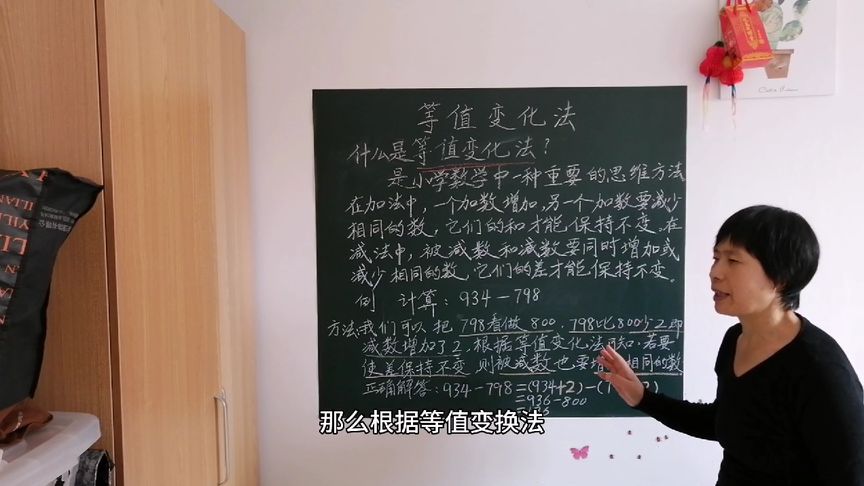 等值变化法
什么是等值变化法？
是小学数学中一种重要的思维方法
在加法中，一个加数增加，另一个加数要减少
相同的数，它们的和才能保持不变。在
减法中，被减数和减数要同时增加或
减少相同的数，它们的差才能保持不变。
例 计算：934－798
方法：我们可以把798看做800，798比800少2即
减数增加了2，根据等值变化法可知：若要
使差保持不变，则被减数也要增 相同的数
正确解答：934－798＝(934+2)－(7 2)
＝936－800
那么根据等值变换法